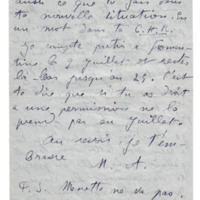 aussi ce que tu fais dans
ta nouvelle situation. En
un mot dans ta
Je compte partir à
le 2 juillet et rester
là-bas jusqu'au 25. C'est
à dire que si tu as droit
à une permission ne la
prend pas en juillet.
Au revoir je t'em-
brasse
M. A.
P.S. Monatte ne va pas